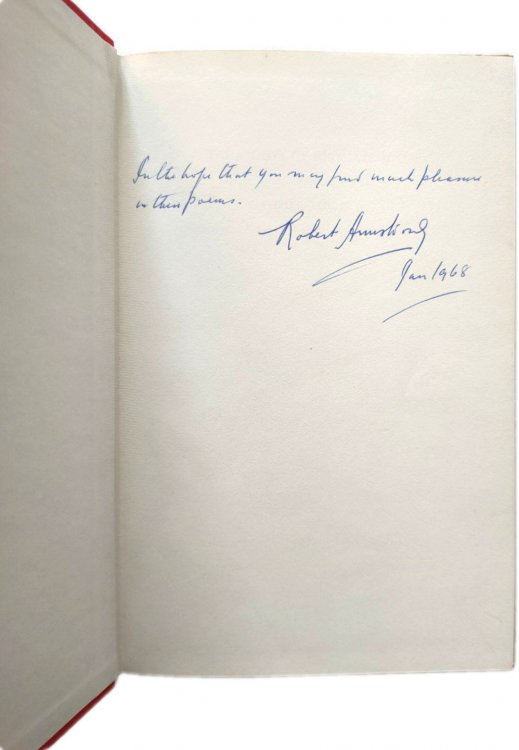 In the hope that you may find much pleasure
in these poems.
Robert Armstrong
Jan 1968